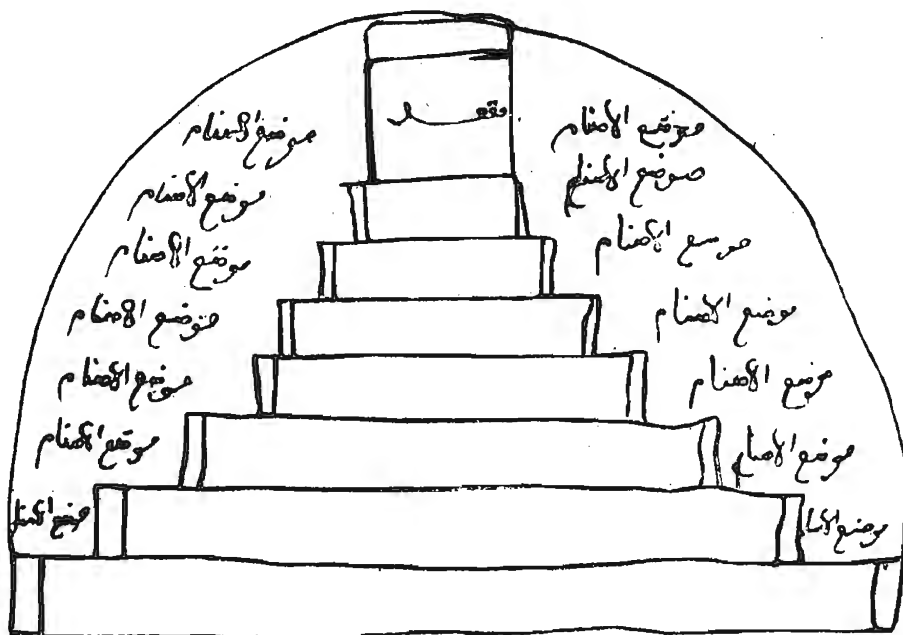 مقعد
موضع الاصنام
موضع الاصنام
موضع الاصنام
موضع الاصنام
موضع الاصنام
موضع الاصنام
موضع الاصنام
موضع الاصنام
موضع الاصنام
موضع الاصنام
موضع الاصنام
موضع الاصنام
موضع
موضع